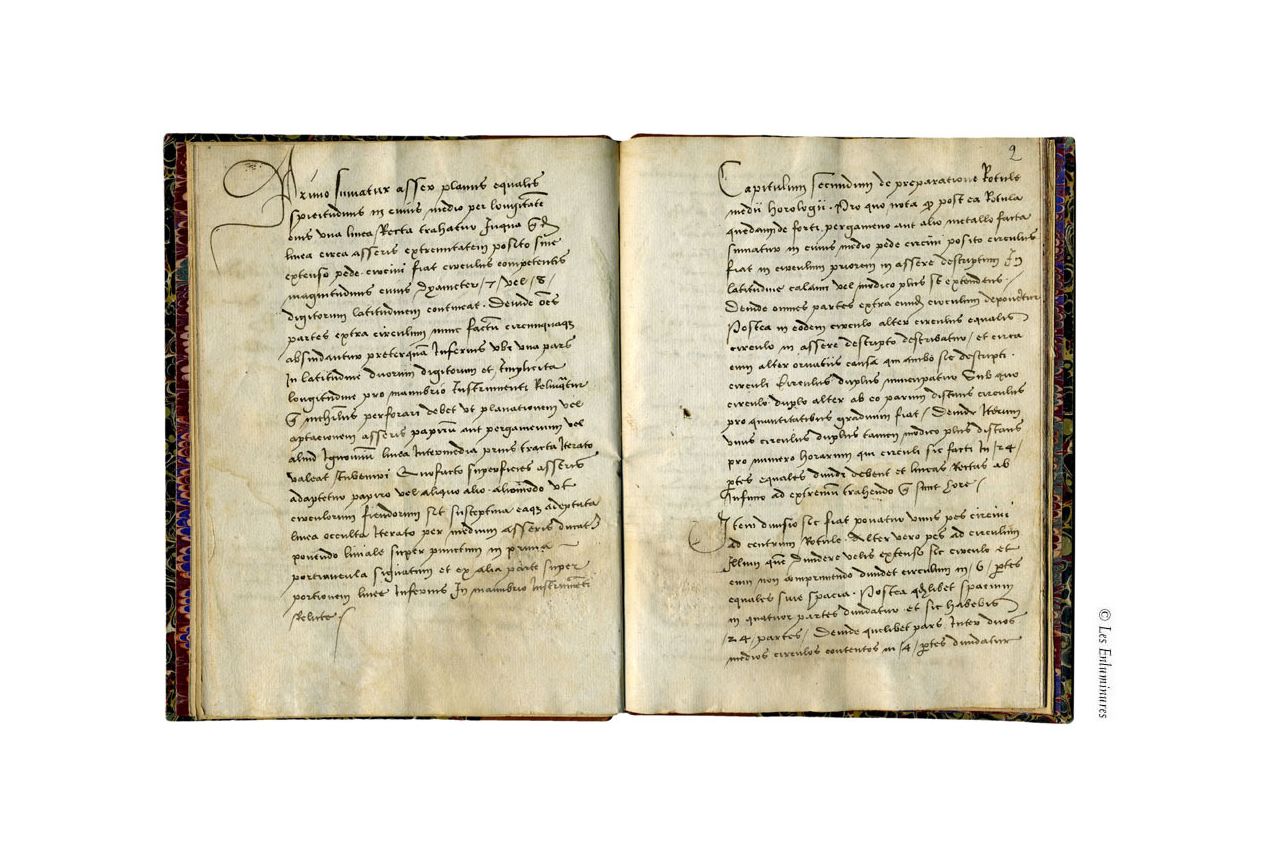 Primo sumatur asser planus equalis
spicitudinis in cuius medio per longitatē
eius vna linea Recta trahatur Iuxta
linea circa asseris extremitatem posito sine
extenso pede circini fiat circulus competentis
magnitudinis cuius dyameter /7/ vel /8/
digitorum latitudinem contineat. Deinde oēs
partes extra circulum nunc factū circumquaqȝ
absindantur preterquā Inferius vbi vna pars
In latitudine duorum digitorum et Implicita
longitudine pro manubrio Instrumenti Relinqͣtur
nichilus perforari debet vt planationem vel
aptacionem asseris papirū aut pergamenum vel
aliud linea Intermedia prius tracta Iterato
valeat Inveniri Quofacto superficies asseris
adaptetur papiro vel aliquo alio vt
circulorum fiendorum sit susceptiua eaqȝ adeptata
linea occulta Iterato per medium asseris
ponendo liniale super punctum in prima
portiuncula signatum et ex alia parte super
portionem linee Inferius In manubrio Instrumēti
Relicte
2
Capitulum secundum de preparatione Rotule
medii horologii. Pro quo nota post ea Rotula
quedam de forti pergameno aut alio metallo facta
sumatur in cuius medio pede circini posito circulus
fiat in circulum priorem in assere descriptum
latitudine calami vel modico plus se extendens.
Deinde omnes partes extra eundē circulum deponētur
Postea in eodem circulo alter circulus equalis
circulo in assere descripto describatur et circa
eum alter ornatus causa qui ambo sic descripti
circuli Circulus duplus nuncupatur Sub quo
circulo duplo alter ab eo parum distans circulus
pro quantitatibus graduum fiat / Deinde Iterum
vnus circulus duplus tamen modico plus distans
pro numero horarum qui circuli sic facti In /24/
ptes equales diuidi debent et lineas Rectas ab
Infimo ad extremum trahendo sunt hore /
Item diuisio sic fiat ponatur vnus pes circini
ad centrum Rotule. Alter vero pes ad circulum
Illum quē diuidere velis extenso sic circulo et
eum non comprimendo diuidet circulum in /6/ ptes
equales suie spacia. Postea qdlibet spacium
in quatuor partes diuidatur et sic habebis
/24/ partes / Deinde quelibet pars Inter duos
medios circulos contentos in /4/ ptes diuidatur
© Les Enluminures